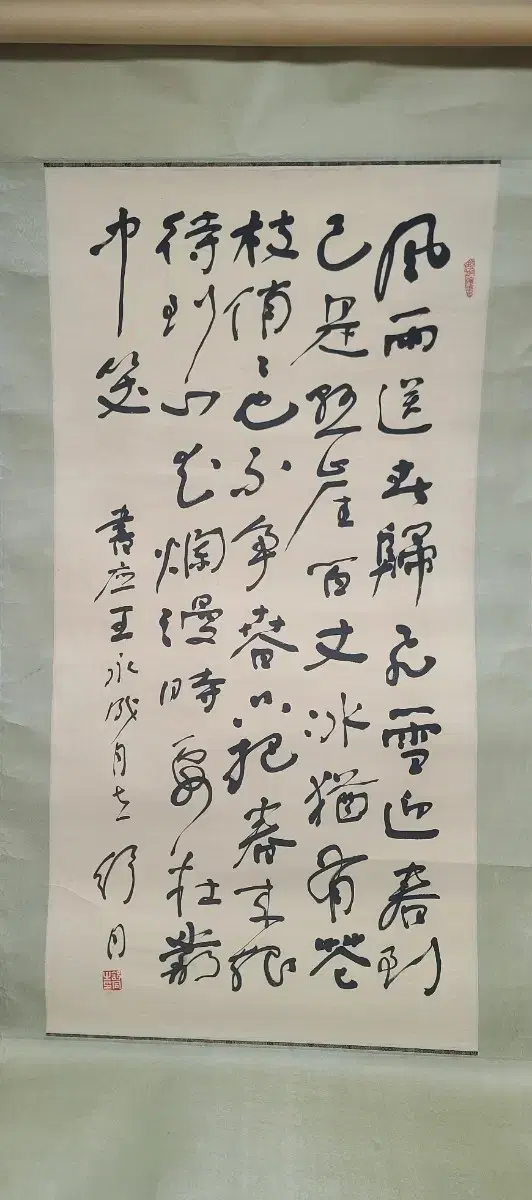 風雨送春歸飛雪迎春到
已是懸崖百丈冰猶有花
枝俏〻也不争春只把春来報
待到山花爛漫時她在叢
中笑
書应王永成同志 舒同